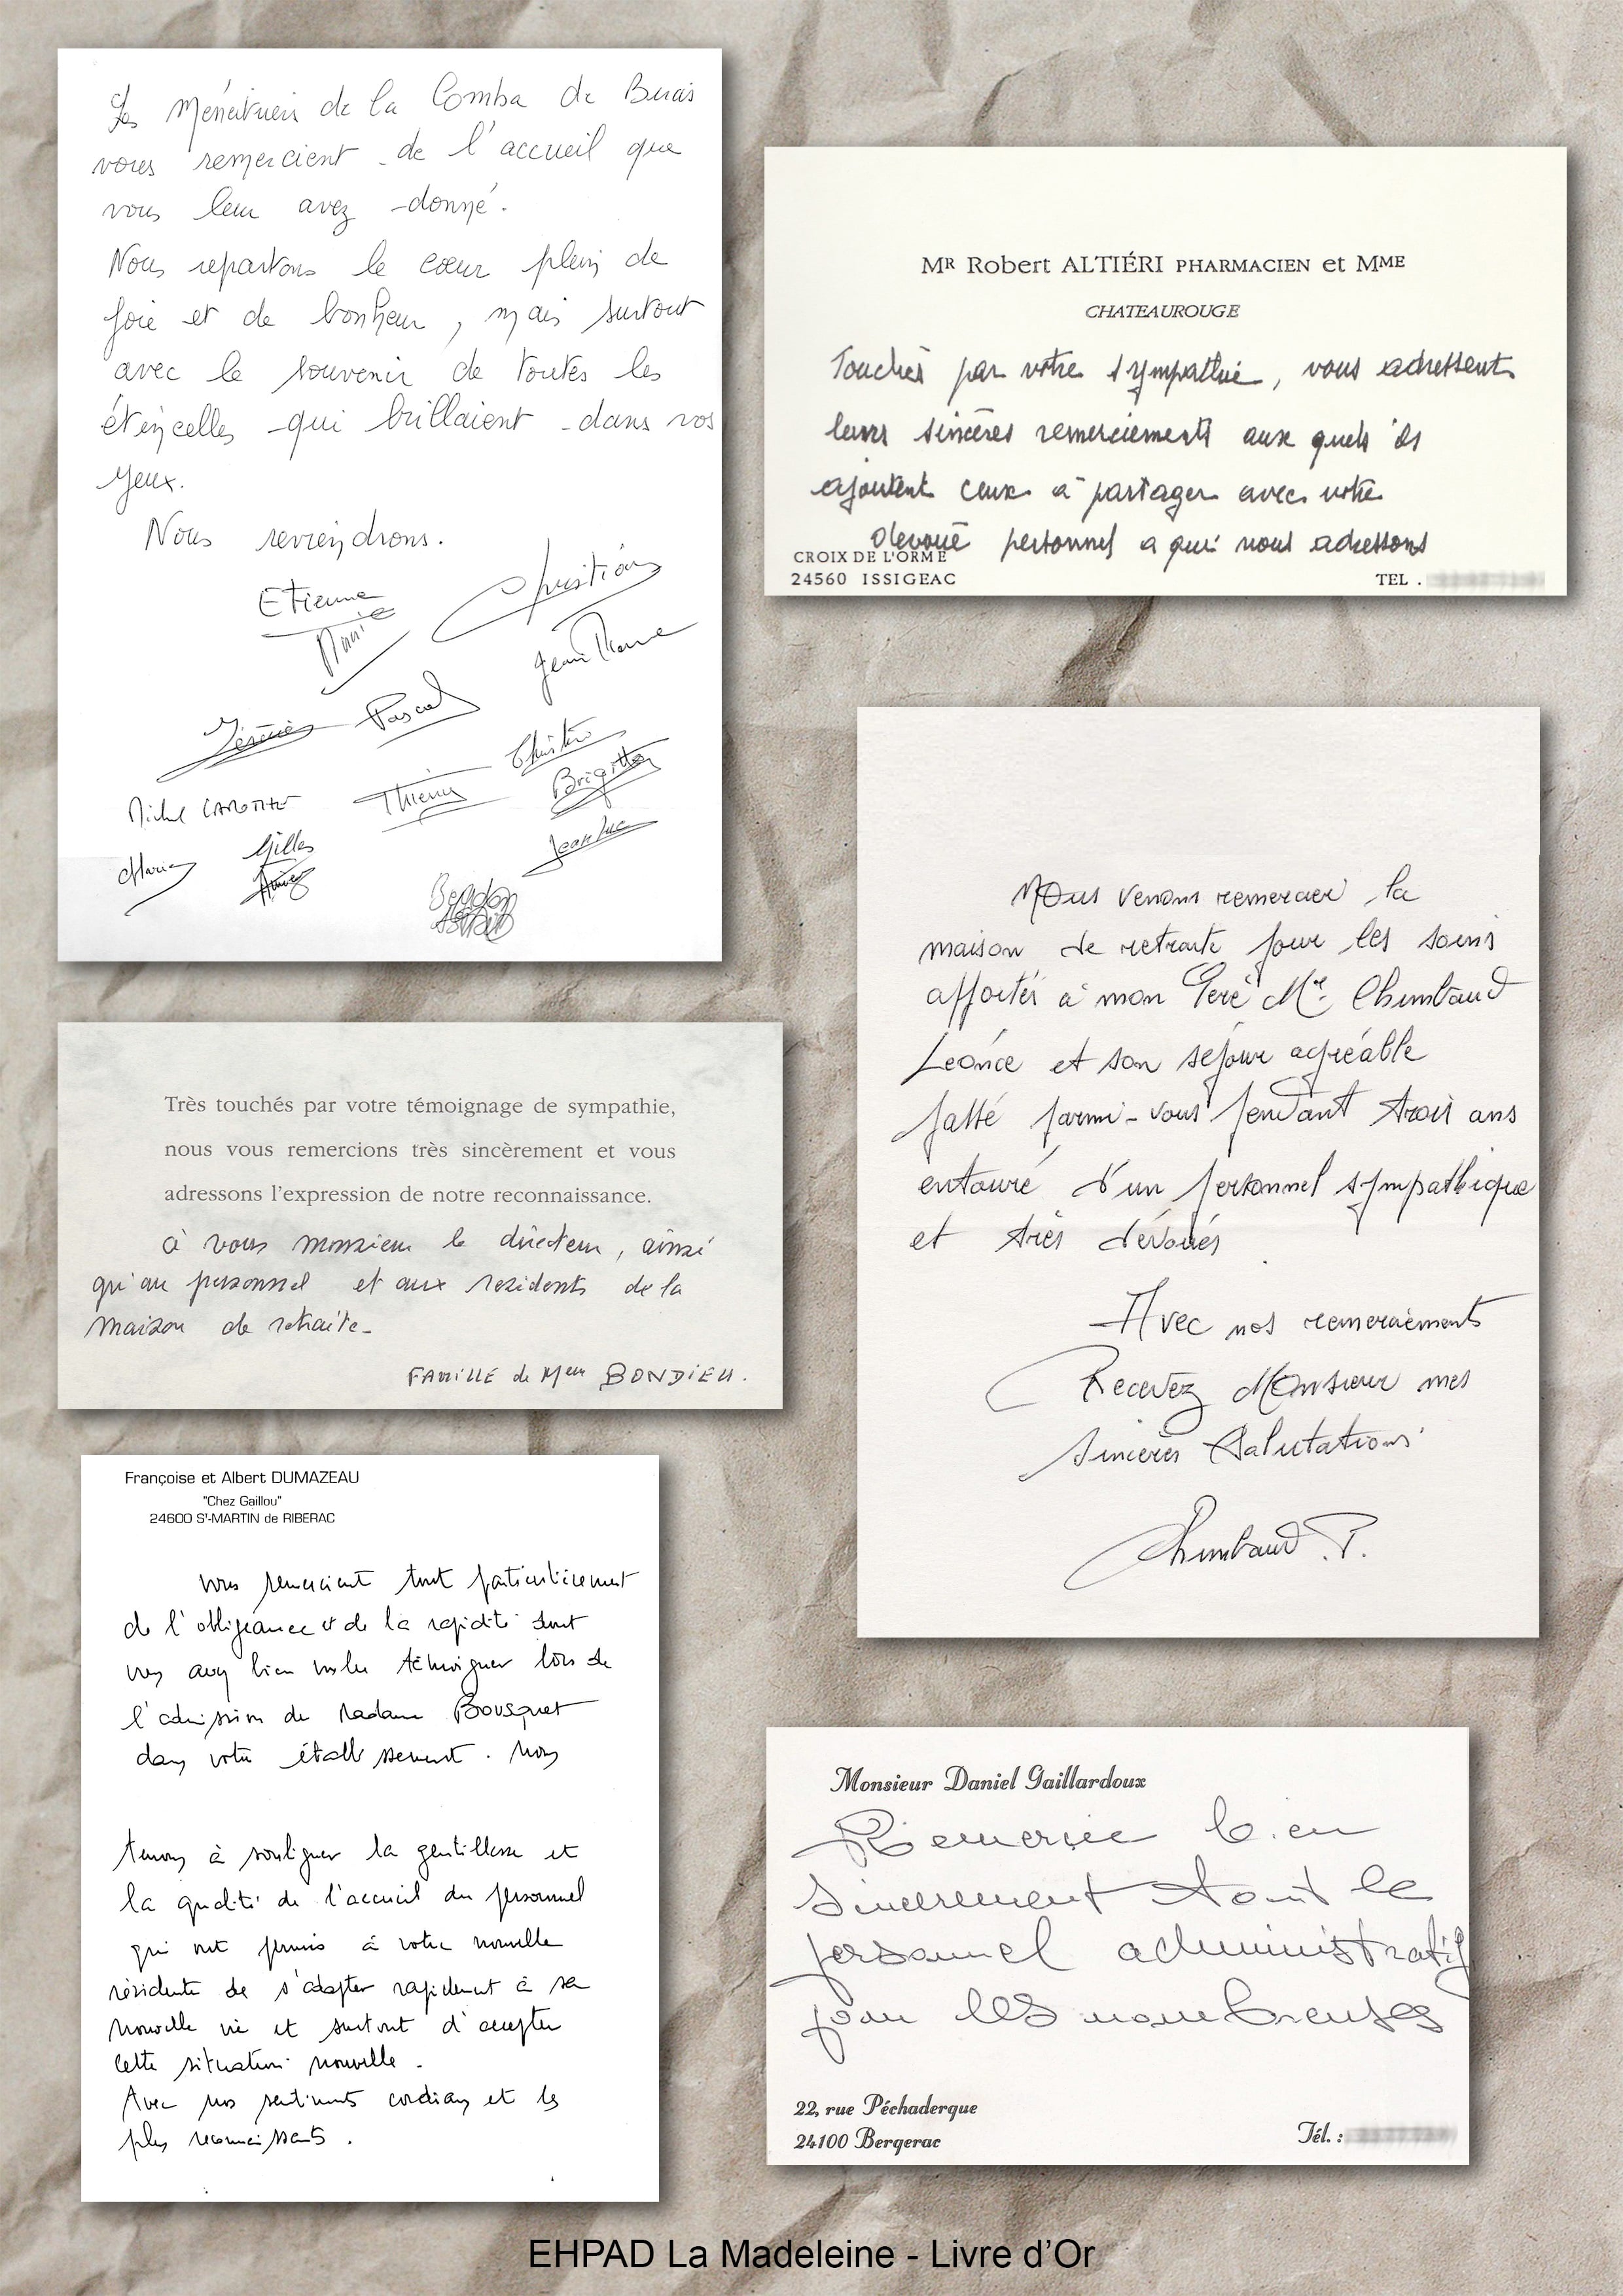 Les Ménétriers de la Comba de Buais
vous remercient de l'accueil que
vous leur avez donné.
Nous repartons le cœur plein de
joie et de bonheur, mais surtout
avec le souvenir de toutes les
étincelles qui brillaient dans vos
yeux.
Nous reviendrons.
Etienne Christian
Marie
Jean Pierre
Pascal
Christian
Thierry Brigitte
Michel
Jean Luc
Gilles
Marie
MR Robert ALTIÉRI PHARMACIEN et MME
CHATEAUROUGE
Touchés par votre sympathie, vous adressent
leurs sincères remerciements aux quels ils
ajoutent ceux à partager avec votre
dévoué personnel a qui nous adressons
CROIX DE L'ORME
24560 ISSIGEAC TEL .
Très touchés par votre témoignage de sympathie,
nous vous remercions très sincèrement et vous
adressons l'expression de notre reconnaissance.
à vous monsieur le directeur, ainsi
qu'au personnel et aux residents de la
maison de retraite.
FAMILLE de Mme BONDIEU.
Nous venons remercier la
maison de retraite pour les soins
apportés à mon Père Mr Chimbaud
Leonce et son séjour agréable
passé parmi-vous pendant trois ans
entouré d'un personnel sympathique
et très dévoués
Avec nos remerciements
Recevez Monsieur mes
sincères Salutations
Chimbaud P.
Françoise et Albert DUMAZEAU
"Chez Gaillou"
24600 St-MARTIN de RIBERAC
vous remercient tout particulièrement
de l'obligeance et de la rapidité dont
vous avez bien voulu témoigner lors de
l'admission de Madame Bousquet
dans votre établissement. Nous
tenons à souligner la gentillesse et
la qualité de l'accueil du personnel
qui ont permis à votre nouvelle
résidente de s'adapter rapidement à sa
nouvelle vie et surtout d'accepter
cette situation nouvelle.
Avec nos sentiments cordiaux et les
plus reconnaissants.
Monsieur Daniel Gaillardoux
Remercie bien
sincerement tout le
personnel administratif
pour les nombreuses
22, rue Péchadergue
24100 Bergerac Tél. :
EHPAD La Madeleine - Livre d'Or